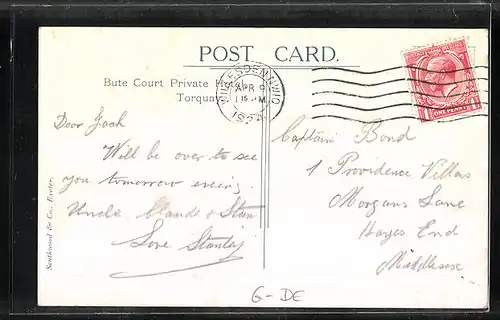 POST CARD.
Bute Court Private Hotel
Torquay
WILLESDEN N.W.10
APR 9
1924
ONE PENNY
Dear Jack
Will be over to see
you tomorrow evening.
Uncle Claude & Stan
Love Stanley
Captain Bond
1 Providence Villas
Morgans Lane
Hayes End
Middlesex
Southwood & Co., Exeter.
G-DE